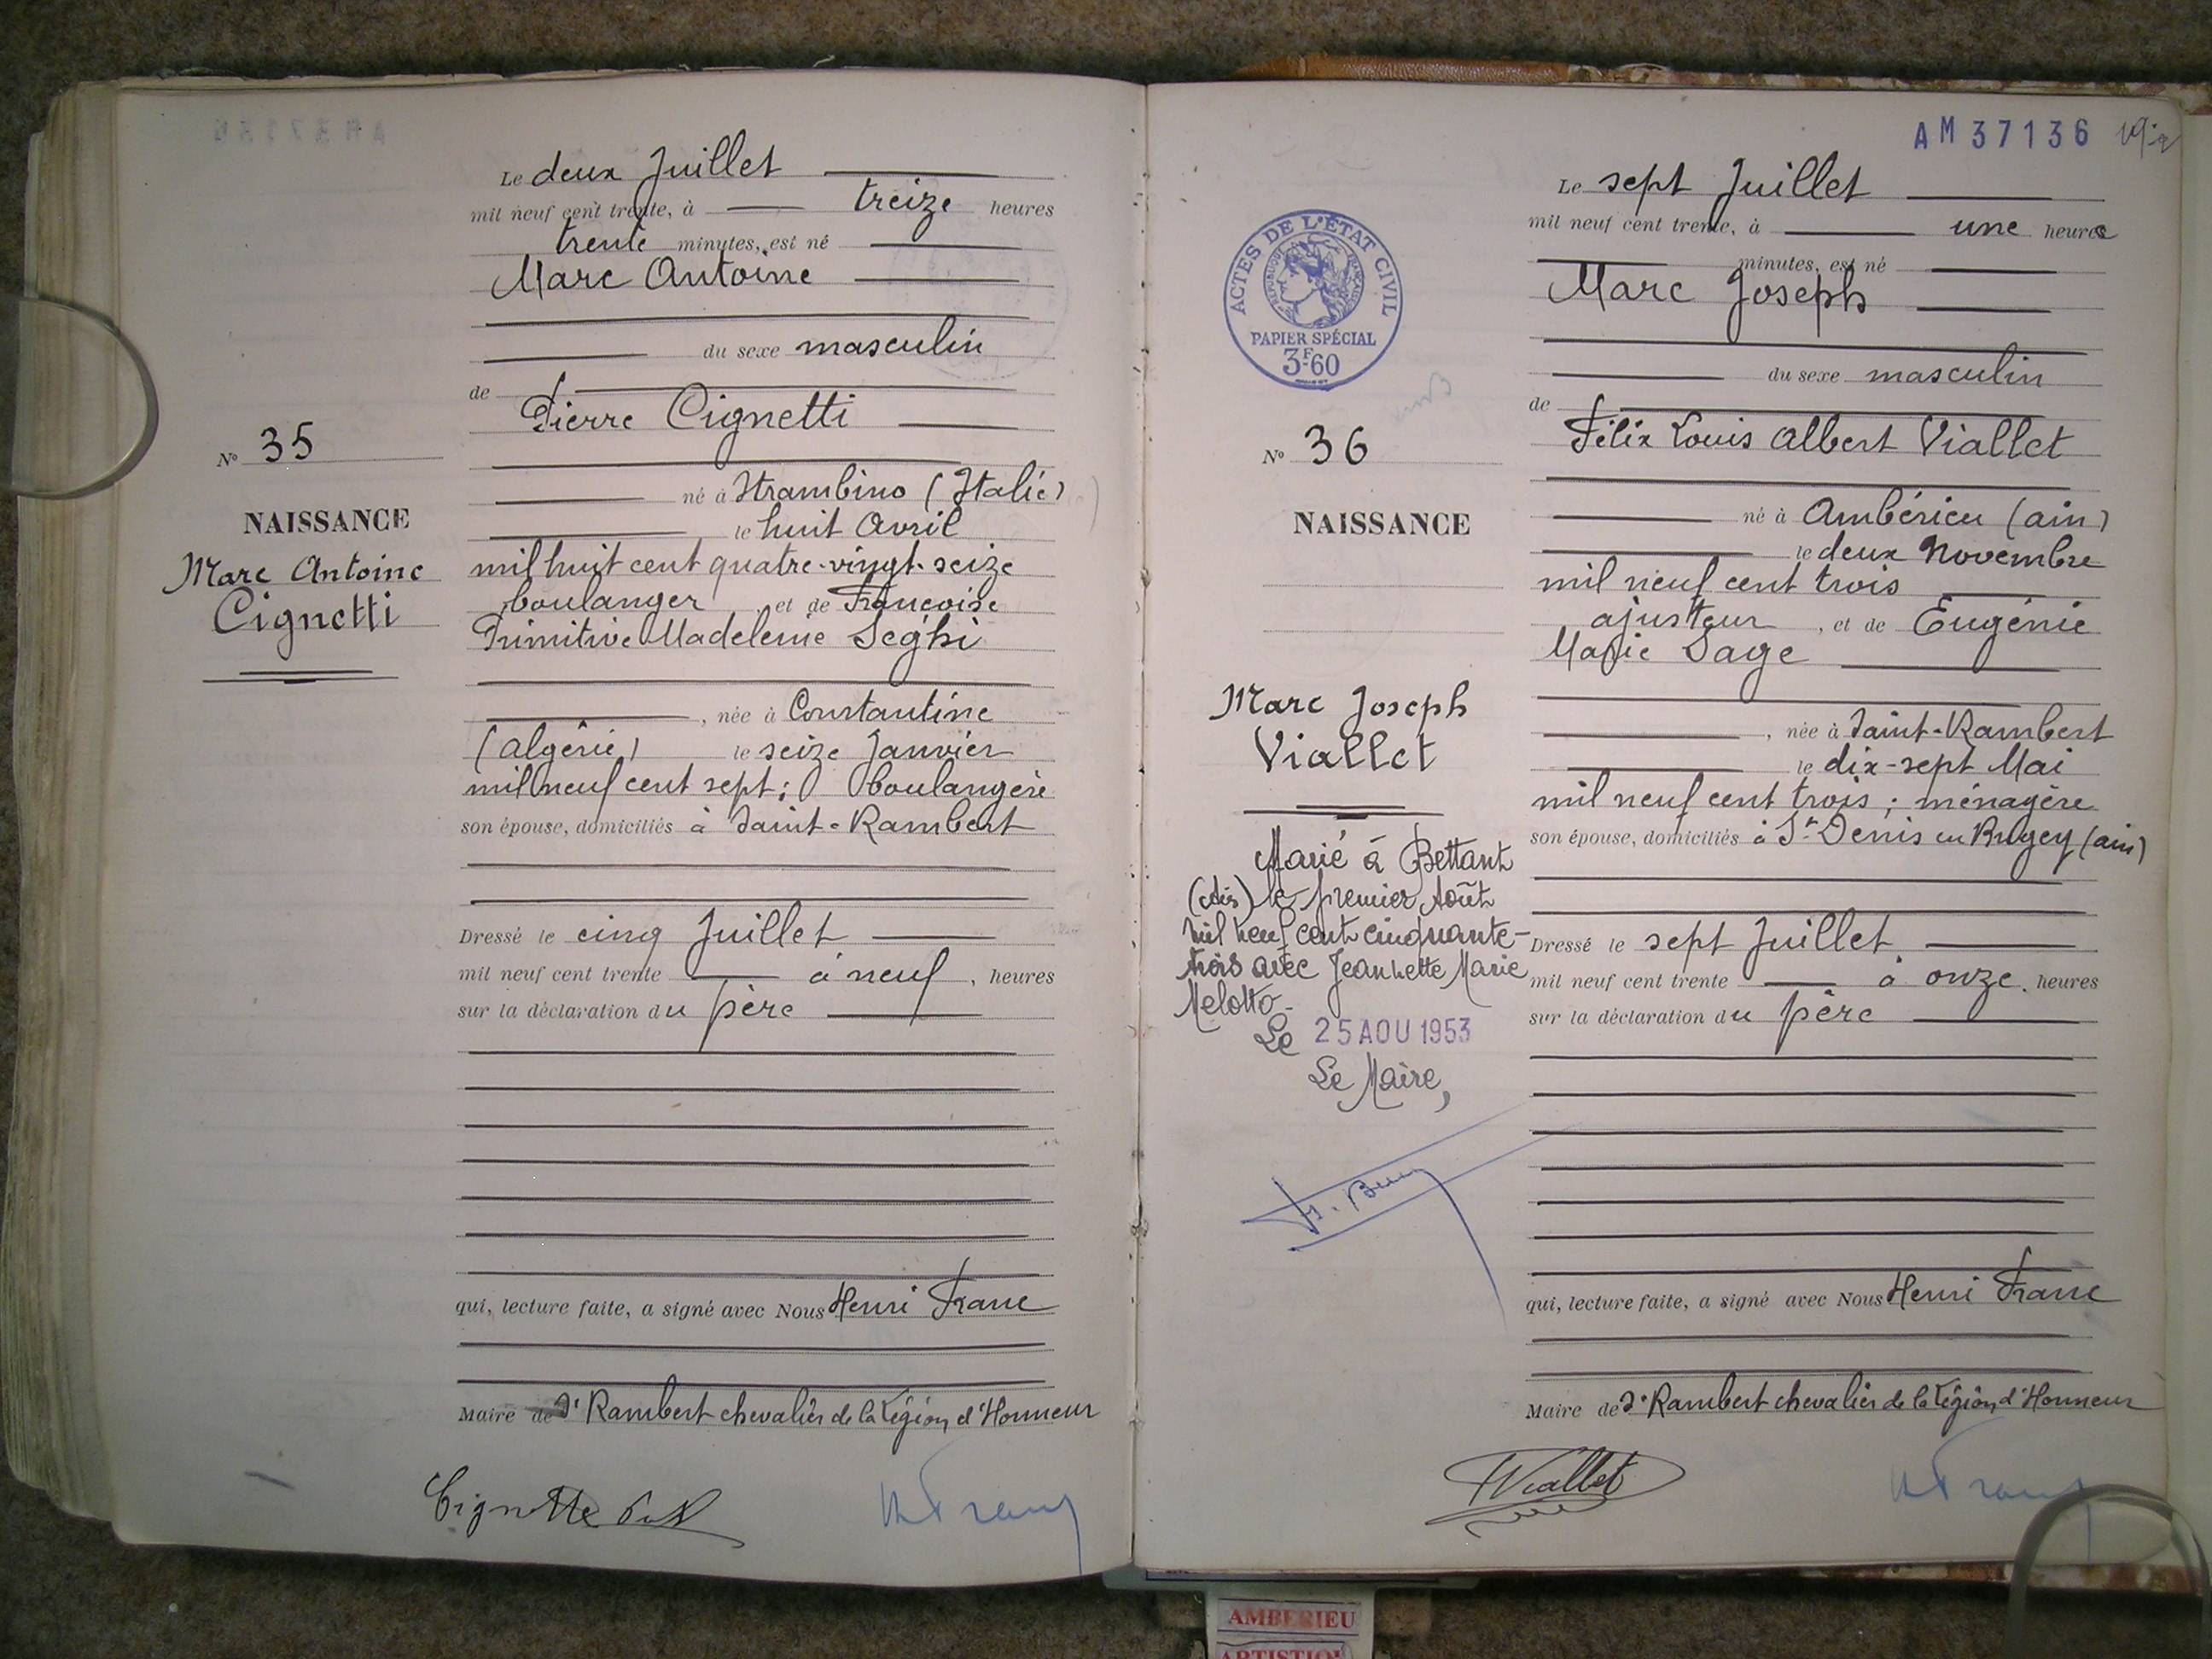 Le deux Juillet
mil neuf cent trente, à treize heures
trente minutes, est né
Marc Antoine
du sexe masculin
de
Pierre Cignetti
né à Strambino (Italie)
le huit Avril
mil huit cent quatre-vingt-seize
boulanger et de Françoise
Primitive Madeleine Seghi
, née à Constantine
(Algérie) le seize Janvier
mil neuf cent sept; boulangère
son épouse, domiciliés à Saint-Rambert
Dressé le cinq Juillet
mil neuf cent trente à neuf, heures
sur la déclaration du père
qui, lecture faite, a signé avec Nous Henri Franc
Maire de St Rambert chevalier de la Légion d'Honneur
N° 35
NAISSANCE
Marc Antoine
Cignetti
AM 37136
Le sept Juillet
mil neuf cent trente, à une heure
minutes, est né
Marc Joseph
du sexe masculin
de
Félix Louis Albert Viallet
né à Ambérieu (Ain)
le deux Novembre
mil neuf cent trois
ajusteur, et de Eugénie
Marie Sage
, née à Saint-Rambert
le dix-sept Mai
mil neuf cent trois; ménagère
son épouse, domiciliés à St Denis en Bugey (Ain)
Dressé le sept Juillet
mil neuf cent trente à onze heures
sur la déclaration du père
qui, lecture faite, a signé avec Nous Henri Franc
Maire de St Rambert chevalier de la Légion d'Honneur
Viallet
ACTES DE L'ÉTAT CIVIL
RÉPUBLIQUE FRANÇAISE
PAPIER SPÉCIAL
3F.60
N° 36
NAISSANCE
Marc Joseph
Viallet
Marié à Bettant
le premier Août
mil neuf cent cinquante-
trois avec Jeannette Marie
Melotto.
Le 25 AOU 1953
Le Maire,
AMBERIEU